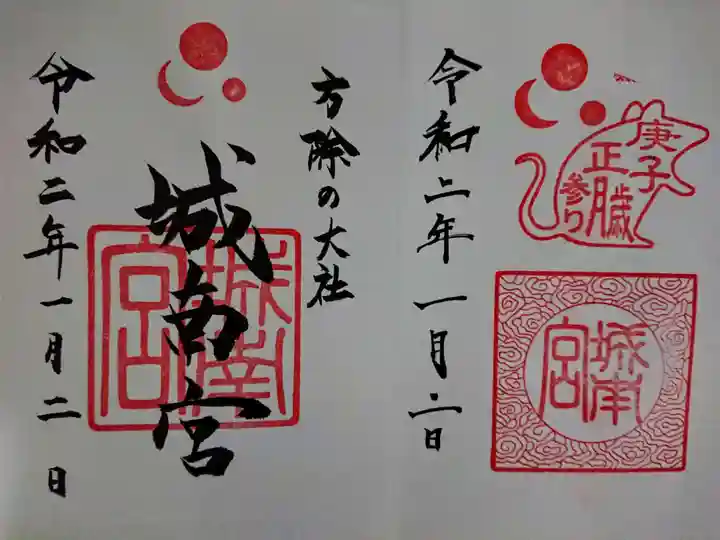 庚子
正月歳
参り
城南
宮
令和二年一月二日
方除の大社
城南宮
城南
宮
令和二年一月二日